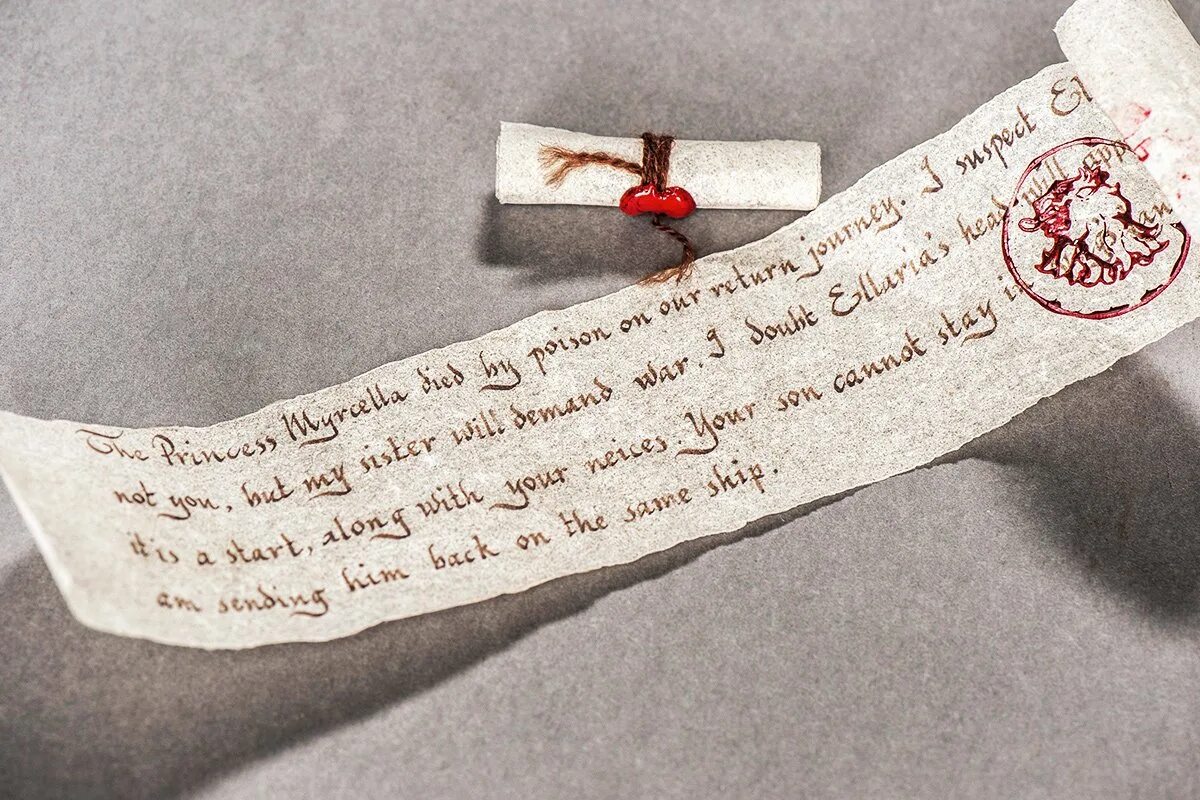 The Princess Myrcella died by poison on our return journey. I suspect El
not you, but my sister will demand war. I doubt Ellaria's head will app
it is a start, along with your neices. Your son cannot stay i
am sending him back on the same ship.